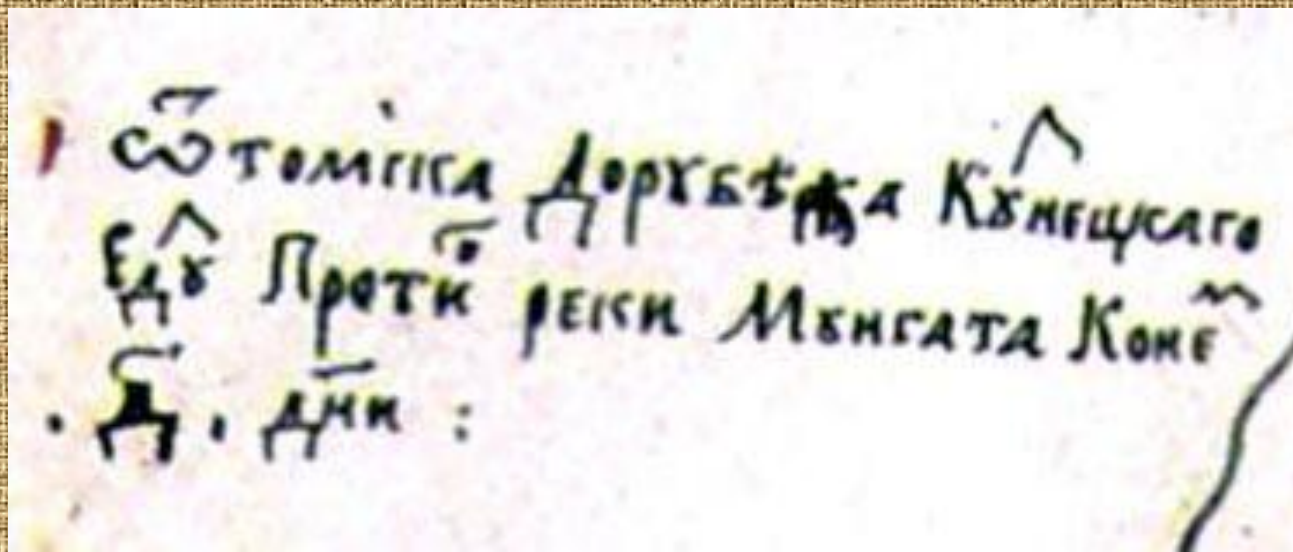 Ѿ томска дорꙋбежа Кꙋнецкаго
едꙋ Проти реки Мꙋнгата Коне
. Д҃ . дни :